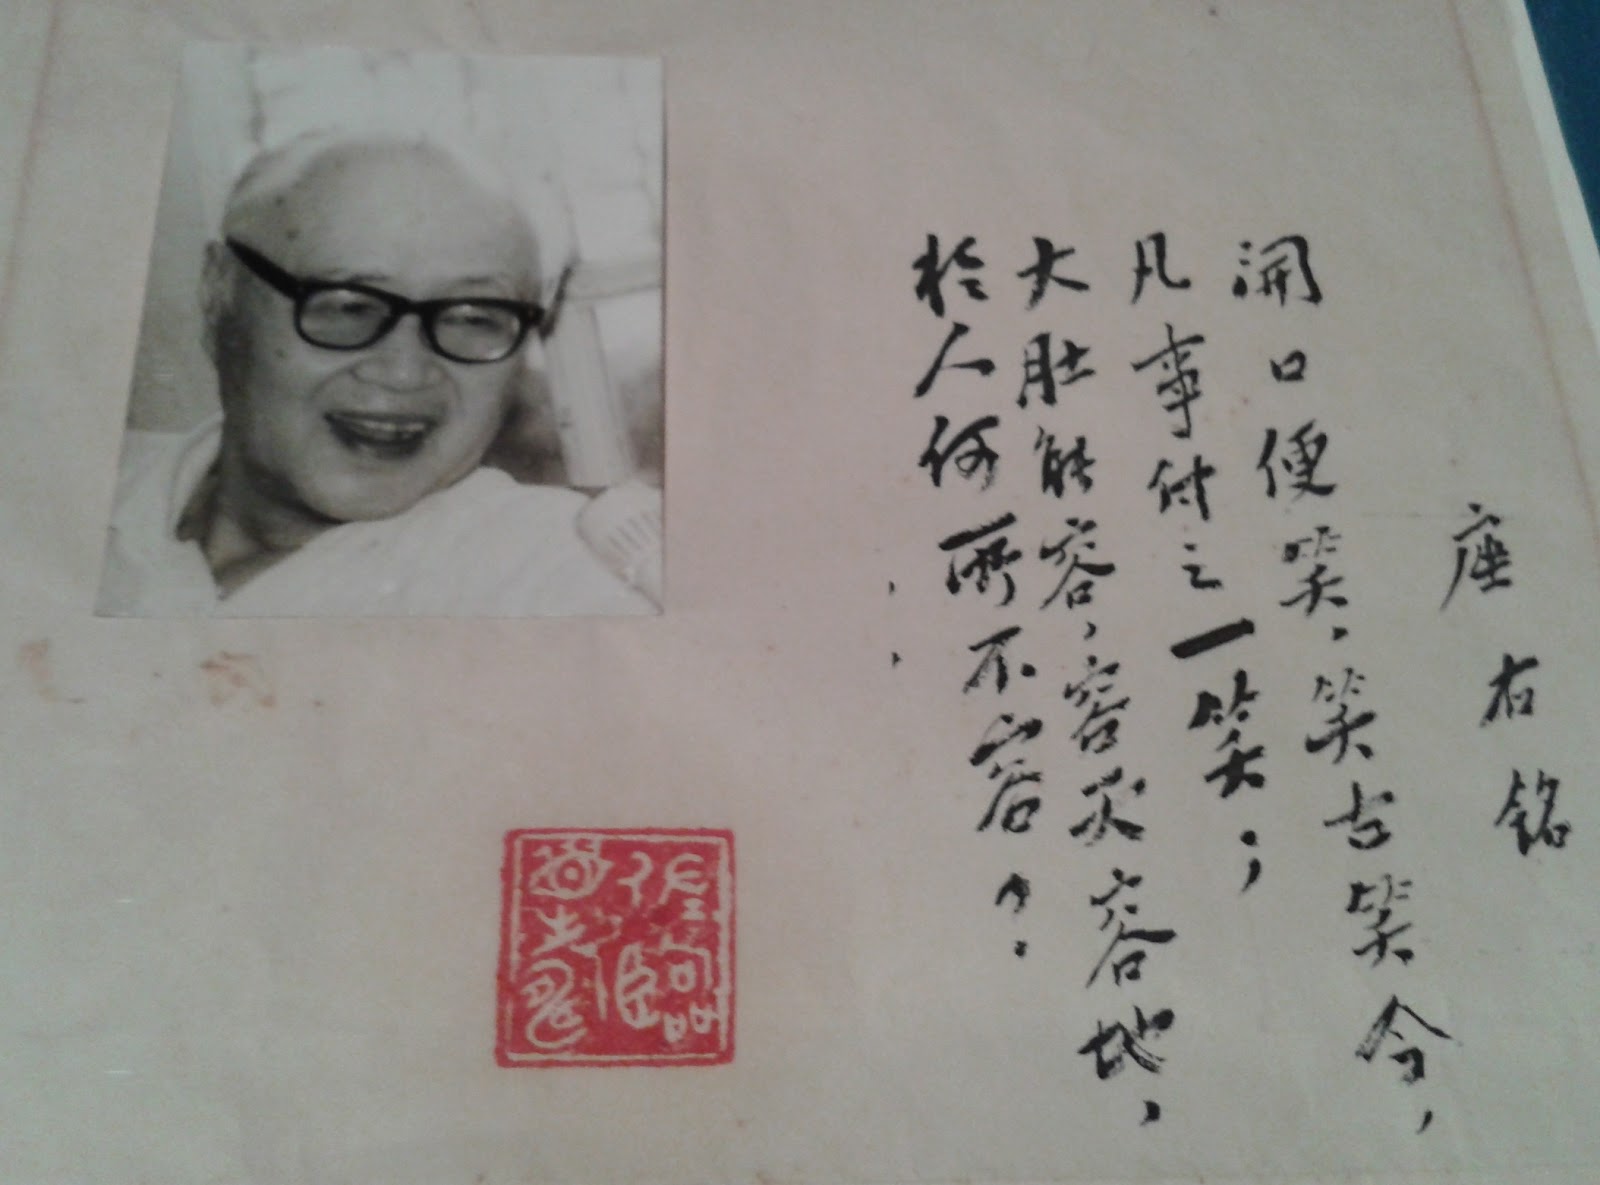 座右銘
開口便笑，笑古笑今，
凡事付之一笑；
大肚能容，容天容地，
於人何所不容？